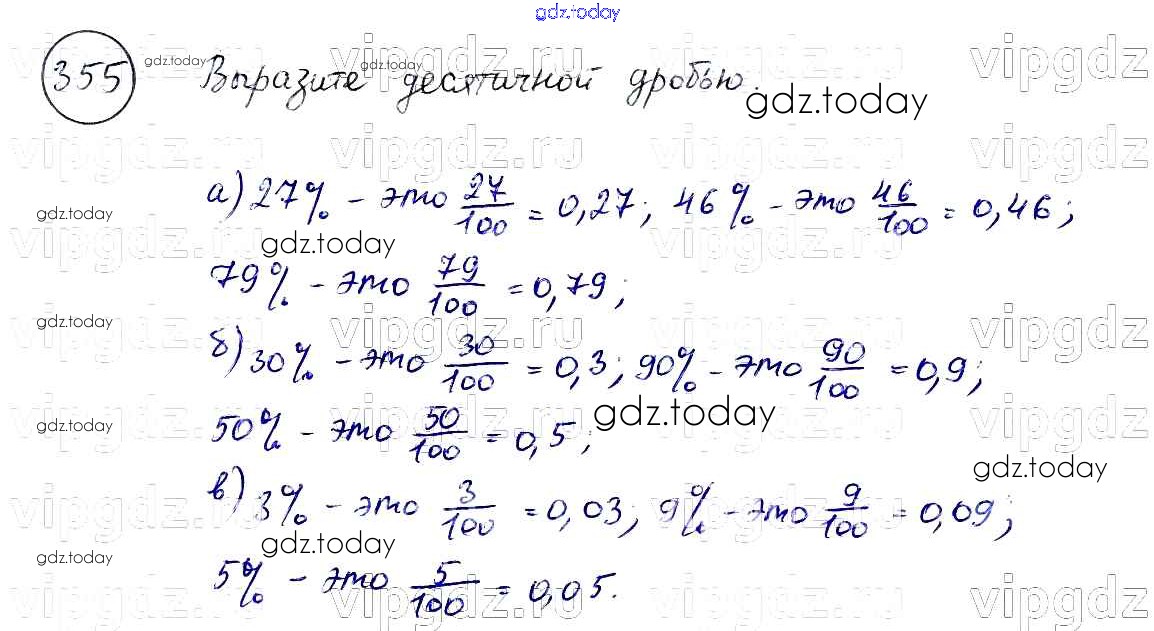 gdz.today
355 gdz.today Выразите gdz.today десятичной дробью. gdz.today
vipgdz.ru vipgdz.ru vipgdz.ru vipgdz
vipgdz.ru vipgdz.ru vipgdz.ru vipgdz
а) 27% - это 27/100 = 0,27; 46% - это 46/100 = 0,46;
gdz.today
vipgdz.ru gdz.today vipgdz.ru vipgdz.ru vipgdz
79% - это 79/100 = 0,79;
gdz.today
vipgdz.ru vipgdz.ru vipgdz.ru vipgdz
б) 30% - это 30/100 = 0,3; 90% - это 90/100 = 0,9;
vipgdz.ru vipgdz.ru gdz.today vipgdz.ru vipgdz
gdz.today
50% - это 50/100 = 0,5;
gdz.today
vipgdz.ru vipgdz.ru vipgdz.ru vipgdz
в) 3% - это 3/100 = 0,03; 9% - это 9/100 = 0,09;
gdz.today gdz.today
5% - это 5/100 = 0,05.
vipgdz.ru vipgdz.ru vipgdz.ru vipgdz